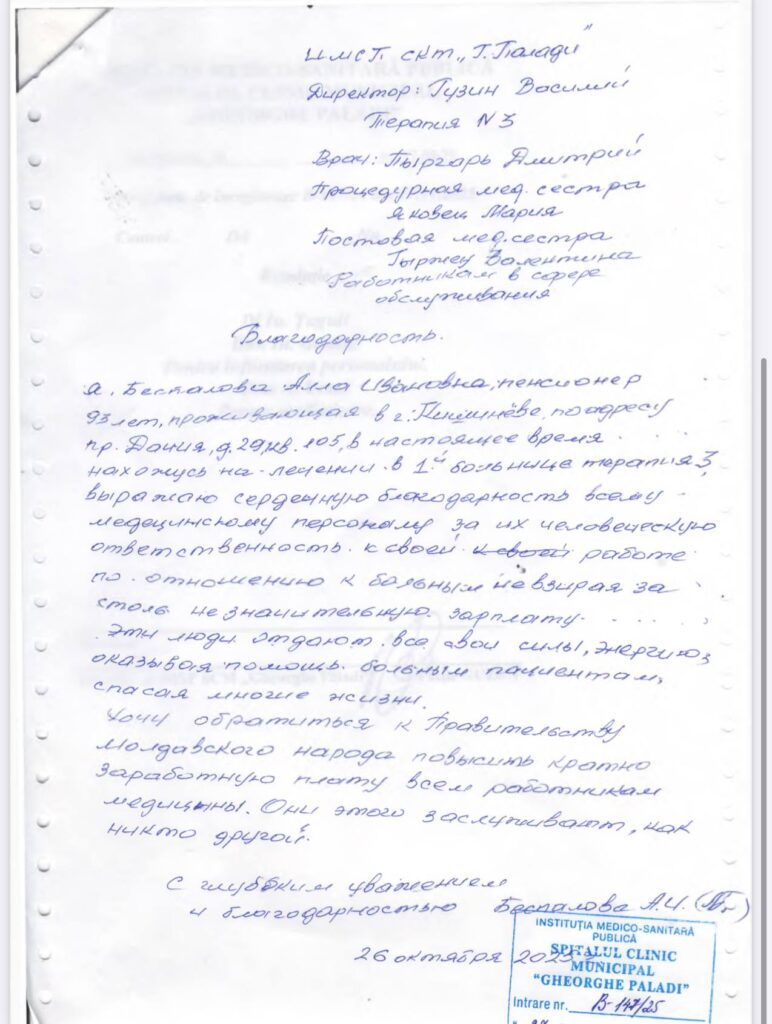 ИМСП СКТ „Г. Палади"
Директор: Гузин Василий
Терапия N 3
Врач: Пыргарь Дмитрий
Процедурная мед. сестра
Яковец Мария
Постовая мед. сестра
Гыржец Валентина
Работникам в сфере
обслуживания
Благодарность.
Я, Беспалова Алла Ивановна, пенсионер
93 лет, проживающая в г. Кишинёве, по адресу
пр. Дачия, д. 29, кв. 105, в настоящее время
нахожусь на лечении в 1й больнице терапия 3,
выражаю сердечную благодарность всему
медецинскому персоналу за их человеческую
ответственность к своей к своей работе
по отношению к больным невзирая за
столь незначительную зарплату.
Эти люди отдают все свои силы, энергию,
оказывая помощь больным пациентам,
спасая многие жизни.
Хочу обратиться к Правительству
Молдавского народа повысить кратно
заработную плату всем работникам
медицины. Они этого заслуживают, как
никто другой.
С глубоким уважением
и благодарностью Беспалова А.И.
26 октября
INSTITUŢIA MEDICO-SANITARĂ
PUBLICĂ
SPITALUL CLINIC
MUNICIPAL
"GHEORGHE PALADI"
Intrare nr. B-147/25